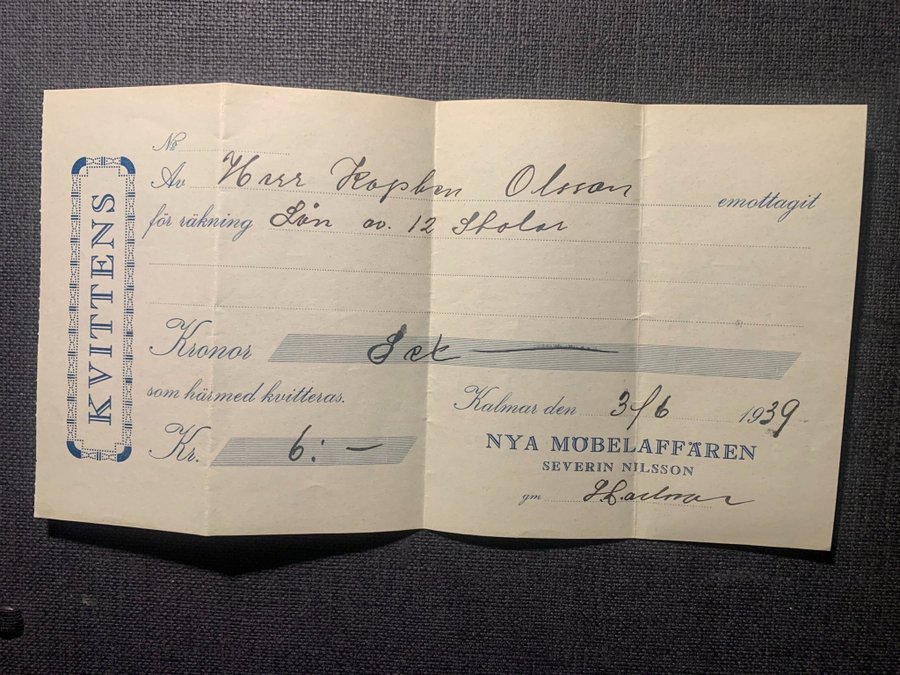 KVITTENS
No
Av Herr Kopben Olsson emottagit
för räkning Lån av. 12 Stolar
Kronor Sex
som härmed kvitteras.
Kalmar den 3/6 1939
Kr. 6: —
NYA MÖBELAFFÄREN
SEVERIN NILSSON
gm